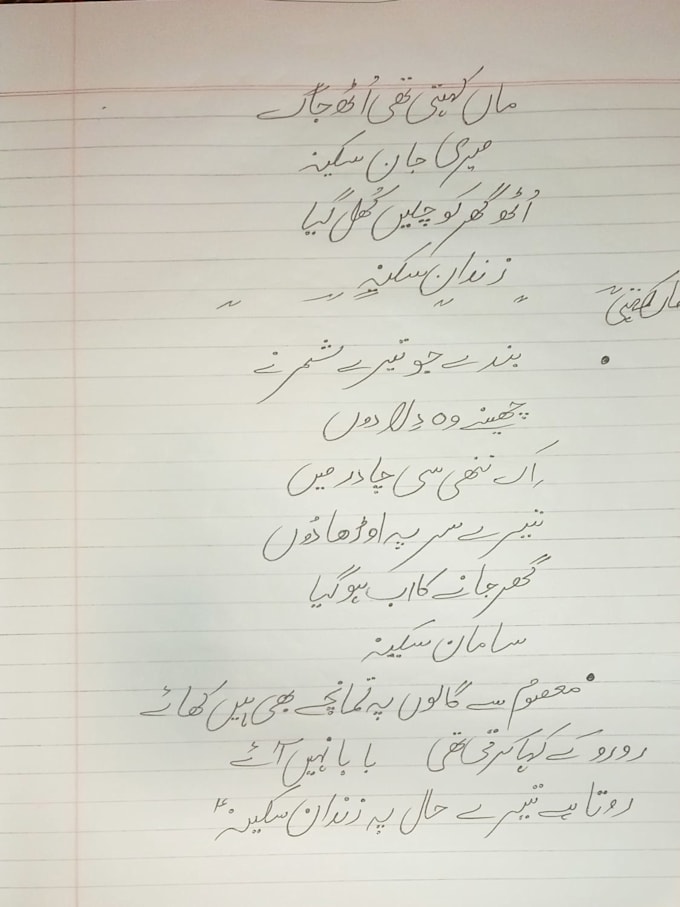 ماں کہتی تھی اُٹھ جاگ
میری جان سکینہ
اُٹھو گھر کو چلیں کُھل گیا
زندانِ سکینہ
ماں کہتی
بندے جو تیرے شمر نے
چھینے وہ دِلا دوں
اِک ننھی سی چادر میں
تیرے سر پہ اوڑھا دُوں
گھر جانے کا اب ہو گیا
سامان سکینہ
معصوم سے گالوں پہ تمانچے بھی ہیں کھائے
رو رو کے کہا کرتی تھی بابا نہیں آئے
روتا ہے تیرے حال پہ زندان سکینہ